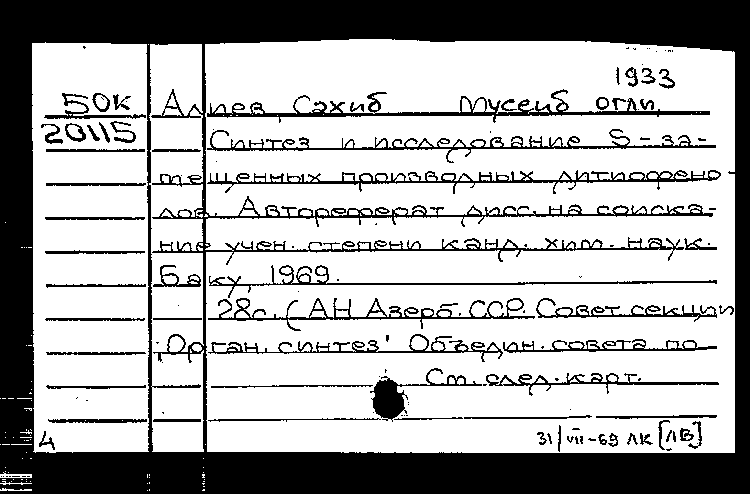 1933
50К Алиев, Сахиб Мусеиб оглы,
20115 Синтез и исследование S-за-
мещенных производных дитиофено-
лов. Автореферат дисс. на соиска-
ние учен. степени канд. хим. наук.
Баку, 1969.
28с. (АН Азерб. ССР. Совет секции
"Орган. синтез" Объедин. совета по
См. след. карт.
4 31/VII-69 ЛК [ЛВ]